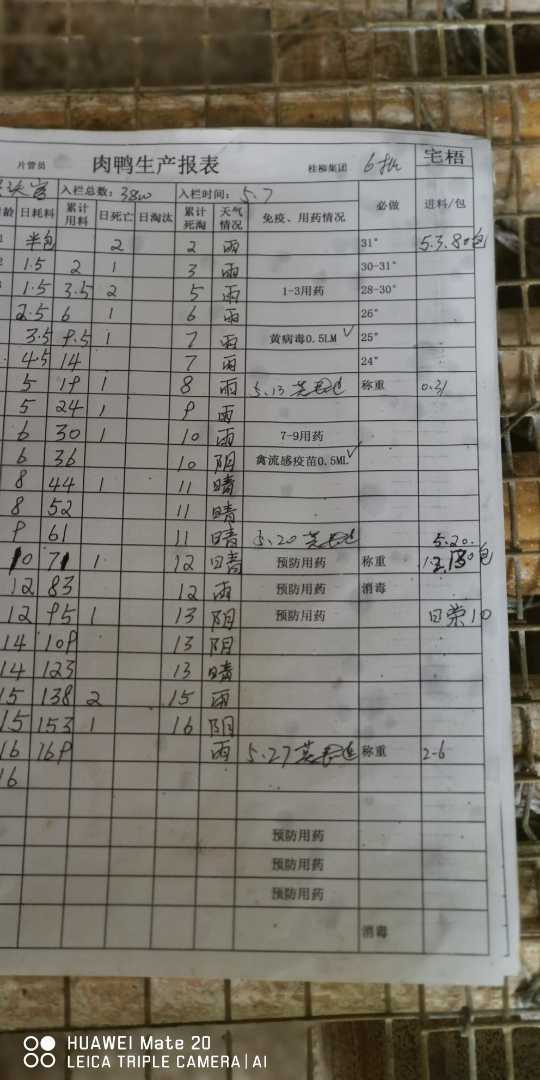 片管员 肉鸭生产报表 桂柳集团 宅梧
入栏总数: 入栏时间: 5.7
龄 日耗料 累计用料 日死亡 日淘汰 累计死淘 天气情况 免疫、用药情况 必做 进料/包
半包 2 2 雨 31° 5.3.80包
1.5 2 1 3 雨 30-31°
1.5 3.5 2 5 雨 1-3用药 28-30°
2.5 6 1 6 雨 26°
3.5 9.5 1 7 雨 黄病毒0.5LM ✓ 25°
4.5 14 7 雨 24°
5 19 1 8 雨 5.13 称重 0.31
5 24 1 9 雨
6 30 1 10 雨 7-9用药
6 36 10 阴 禽流感疫苗0.5ML ✓
8 44 1 11 晴
8 52 11 晴
9 61 11 晴 5.20 5.20.
10 71 1 12 晴 预防用药 称重
12 83 12 雨 预防用药 消毒
12 95 1 13 阴 预防用药
14 109 13 阴
14 123 13 晴
15 138 2 15 雨
15 153 1 16 阴
16 169 雨 5.27 称重 2-6
16
预防用药
预防用药
预防用药
消毒
HUAWEI Mate 20
LEICA TRIPLE CAMERA | AI